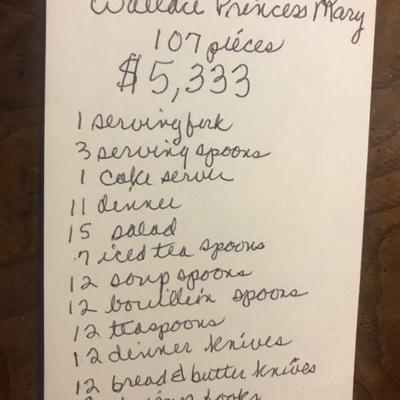 Wallace Princess Mary
107 piéces
$5,333
1 serving fork
3 serving spoons
1 cake server
11 dinner
15 salad
7 iced tea spoons
12 soup spoons
12 bouillin spoons
12 teaspoons
12 dinner knives
12 bread & butter knives